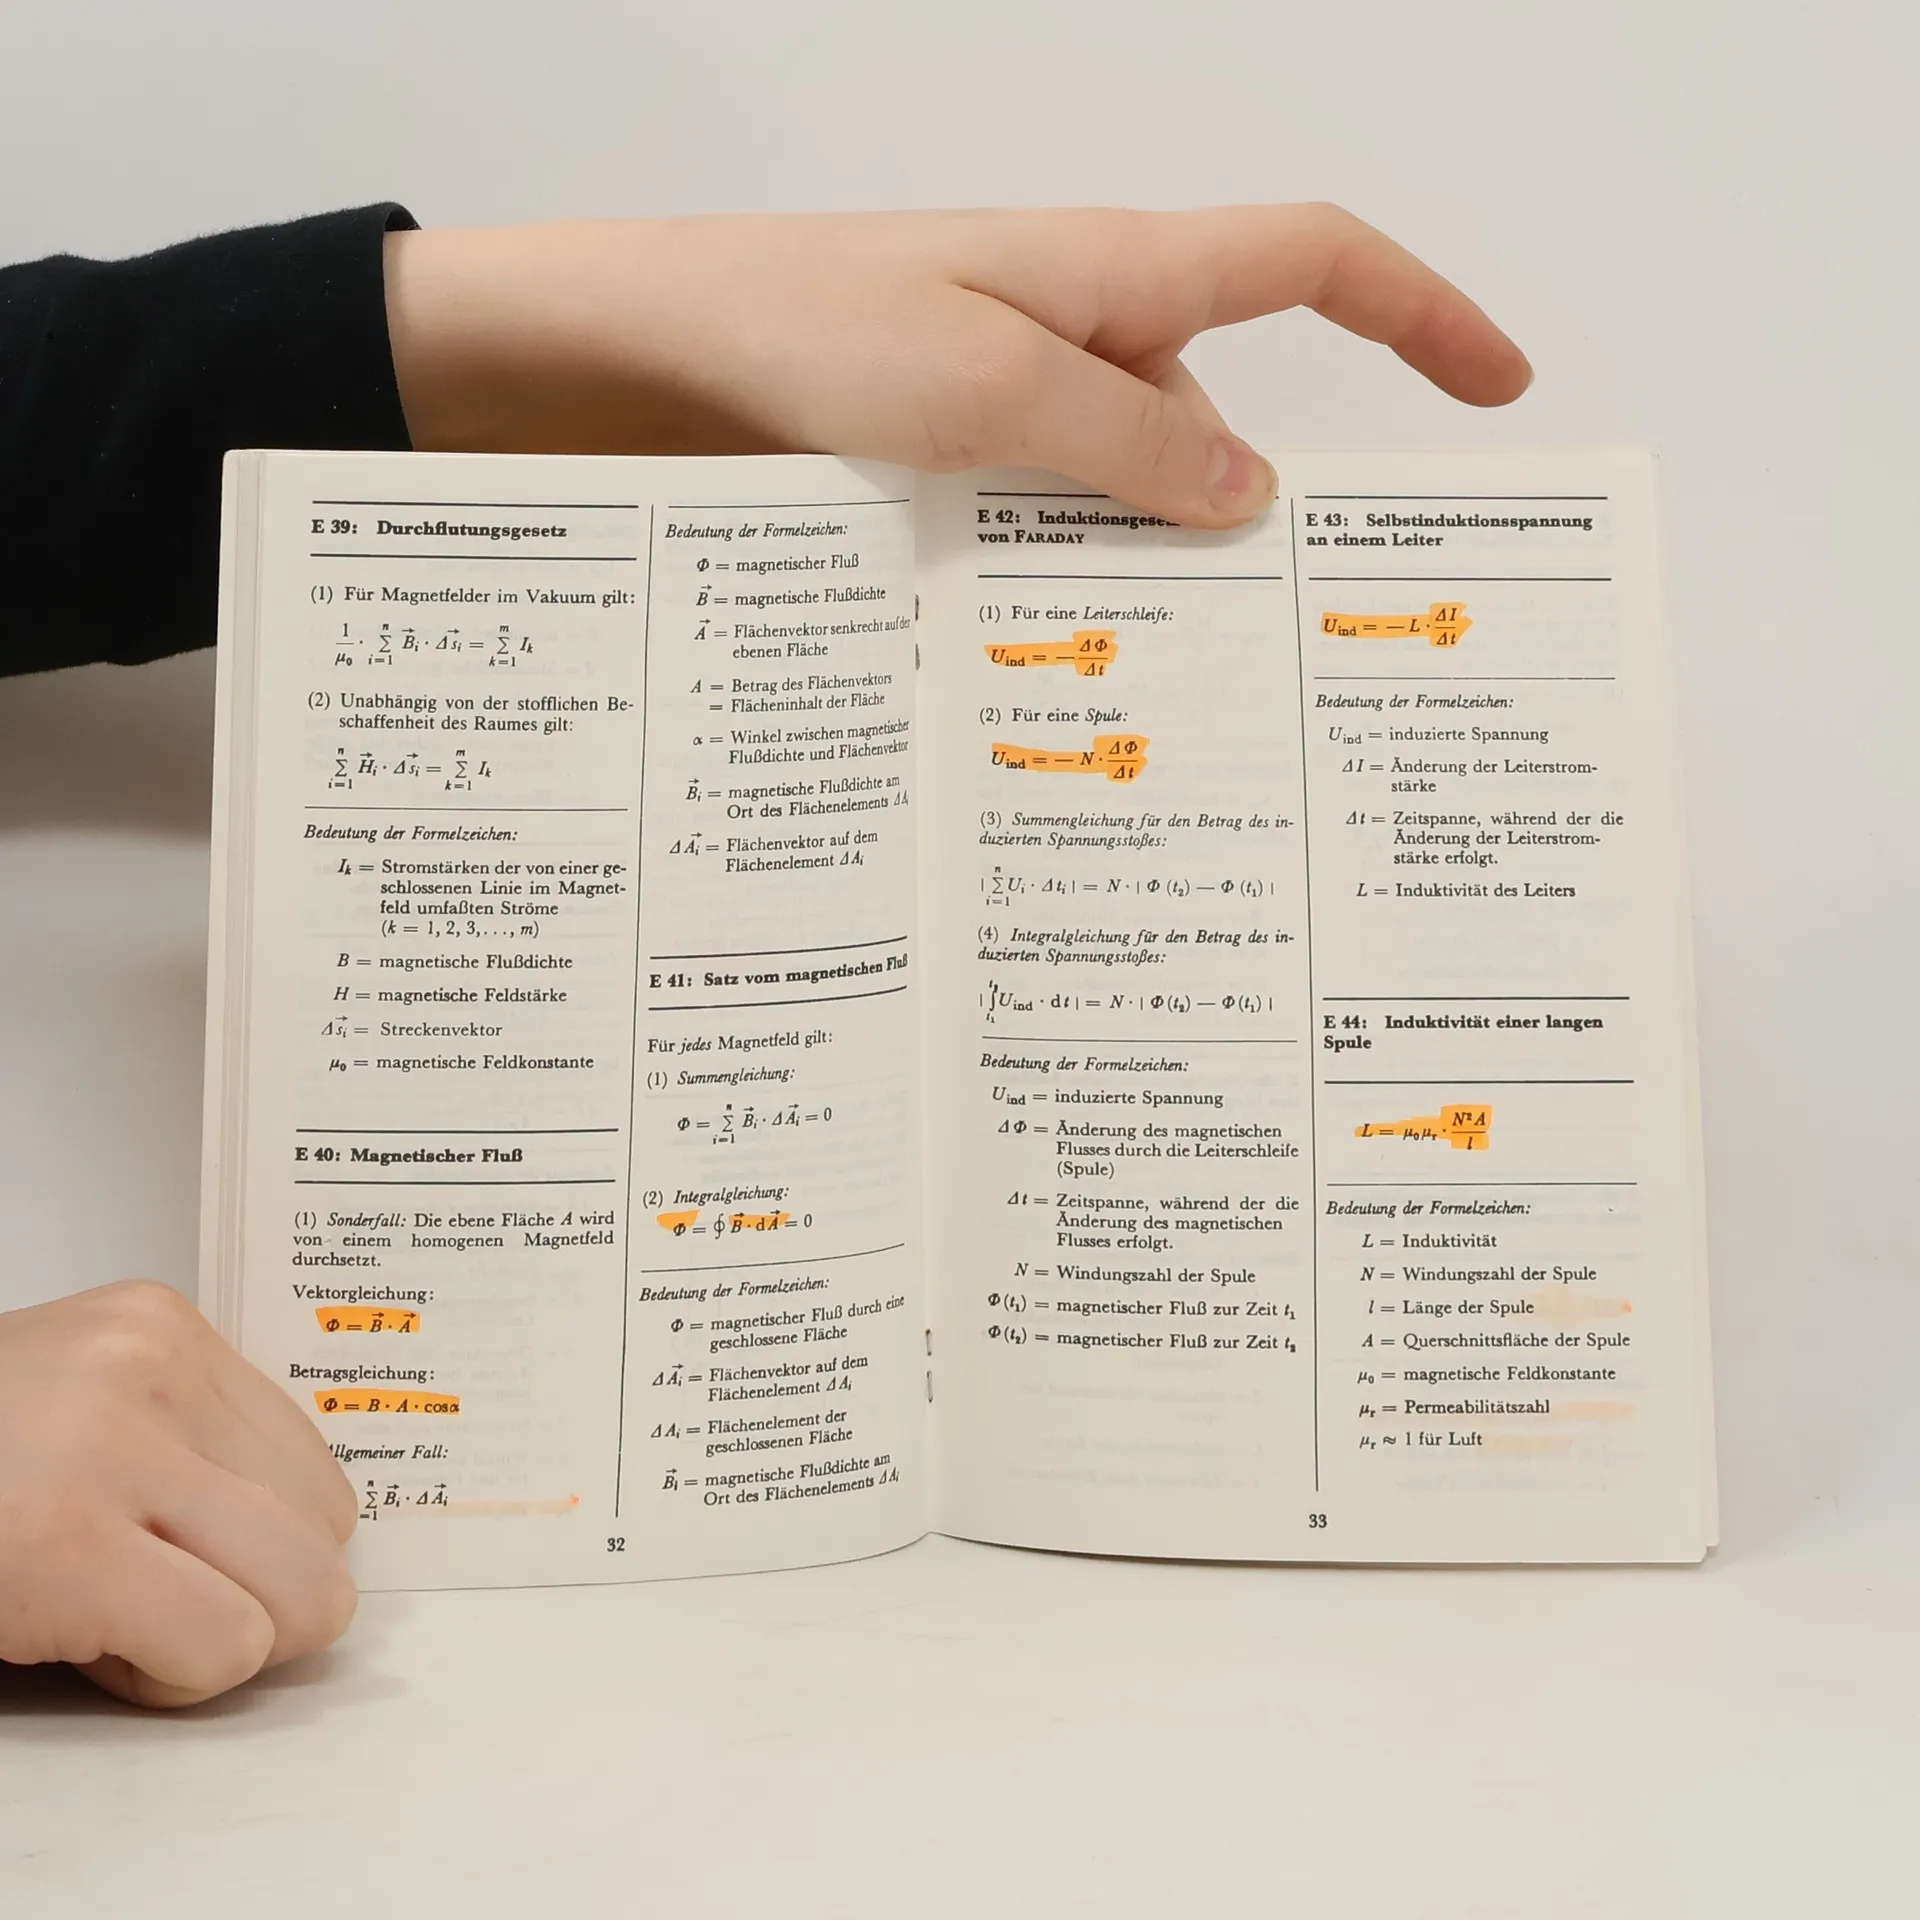 E 39: Durchflutungsgesetz
(1) Für Magnetfelder im Vakuum gilt:
1/μ₀ · n∑i=1 B⃗ᵢ · Δs⃗ᵢ = m∑k=1 Iₖ
(2) Unabhängig von der stofflichen Be-
schaffenheit des Raumes gilt:
n∑i=1 H⃗ᵢ · Δs⃗ᵢ = m∑k=1 Iₖ
Bedeutung der Formelzeichen:
Iₖ = Stromstärken der von einer ge-
schlossenen Linie im Magnet-
feld umfaßten Ströme
(k = 1, 2, 3,. . ., m)
B = magnetische Flußdichte
H = magnetische Feldstärke
Δs⃗ᵢ = Streckenvektor
μ₀ = magnetische Feldkonstante
E 40: Magnetischer Fluß
(1) Sonderfall: Die ebene Fläche A wird
von einem homogenen Magnetfeld
durchsetzt.
Vektorgleichung:
Φ = B⃗ · A⃗
Betragsgleichung:
Φ = B · A · cos α
llgemeiner Fall:
n∑=1 B⃗ᵢ · ΔA⃗ᵢ
Bedeutung der Formelzeichen:
Φ = magnetischer Fluß
B⃗ = magnetische Flußdichte
A⃗ = Flächenvektor senkrecht auf der
ebenen Fläche
A = Betrag des Flächenvektors
= Flächeninhalt der Fläche
α = Winkel zwischen magnetischer
Flußdichte und Flächenvektor
B⃗ᵢ = magnetische Flußdichte am
Ort des Flächenelements ΔAᵢ
ΔA⃗ᵢ = Flächenvektor auf dem
Flächenelement ΔAᵢ
E 41: Satz vom magnetischen Fluß
Für jedes Magnetfeld gilt:
(1) Summengleichung:
Φ = n∑i=1 B⃗ᵢ · ΔA⃗ᵢ = 0
(2) Integralgleichung:
Φ = ∮ B⃗ · dA⃗ = 0
Bedeutung der Formelzeichen:
Φ = magnetischer Fluß durch eine
geschlossene Fläche
ΔA⃗ᵢ = Flächenvektor auf dem
Flächenelement ΔAᵢ
ΔAᵢ = Flächenelement der
geschlossenen Fläche
B⃗ᵢ = magnetische Flußdichte am
Ort des Flächenelements ΔAᵢ
32
E 42: Induktionsgese
von FARADAY
(1) Für eine Leiterschleife:
Uind = − ΔΦ/Δt
(2) Für eine Spule:
Uind = − N · ΔΦ/Δt
(3) Summengleichung für den Betrag des in-
duzierten Spannungsstoßes:
| n∑i=1 Uᵢ · Δtᵢ | = N · | Φ (t₂) − Φ (t₁) |
(4) Integralgleichung für den Betrag des in-
duzierten Spannungsstoßes:
| t₂∫t₁ Uind · dt | = N · | Φ (t₂) − Φ (t₁) |
Bedeutung der Formelzeichen:
Uind = induzierte Spannung
ΔΦ = Änderung des magnetischen
Flusses durch die Leiterschleife
(Spule)
Δt = Zeitspanne, während der die
Änderung des magnetischen
Flusses erfolgt.
N = Windungszahl der Spule
Φ (t₁) = magnetischer Fluß zur Zeit t₁
Φ (t₂) = magnetischer Fluß zur Zeit t₂
E 43: Selbstinduktionsspannung
an einem Leiter
Uind = − L · ΔI/Δt
Bedeutung der Formelzeichen:
Uind = induzierte Spannung
ΔI = Änderung der Leiterstrom-
stärke
Δt = Zeitspanne, während der die
Änderung der Leiterstrom-
stärke erfolgt.
L = Induktivität des Leiters
E 44: Induktivität einer langen
Spule
L = μ₀μᵣ · N²A/l
Bedeutung der Formelzeichen:
L = Induktivität
N = Windungszahl der Spule
l = Länge der Spule
A = Querschnittsfläche der Spule
μ₀ = magnetische Feldkonstante
μᵣ = Permeabilitätszahl
μᵣ ≈ 1 für Luft
33